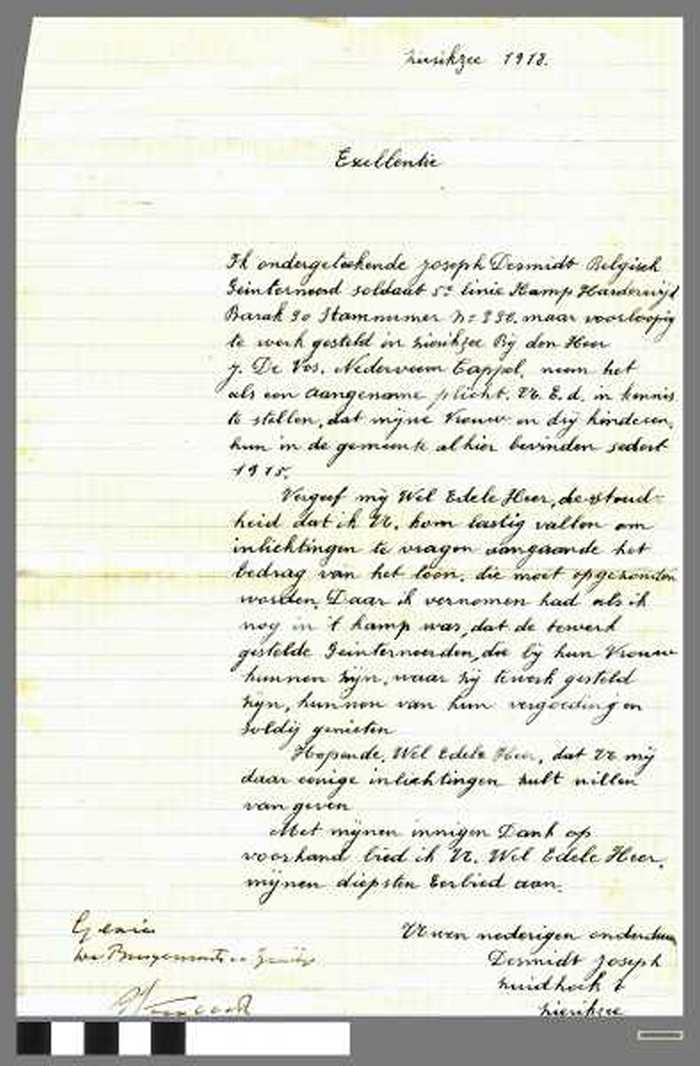 Zierikzee 1918.
Exellentie
Ik ondergeteekende Joseph Desmidt Belgisch
Geinterneerd soldaat 5e linie Kamp Harderwijk
Barak 90 Stamnumer maar voorloopig
te werk gesteld in Zierikzee Bij den Heer
J. De Vos. Nederveem Cappel, neem het
als een aangename plicht. U. E. d. in kennis
te stellen, dat mijne Vrouw en drij kinderen,
hun in de gemeente alhier bevinden sedert
1915.
Vergeef mij Wel Edele Heer, de stout-
heid dat ik U. kom lastig vallen om
inlichtingen te vragen aangaande het
bedrag van het loon, die moet opgezonden
worden. Daar ik vernomen had als ik
nog in 't kamp was, dat de tewerk
gestelde Geinterneerden, die bij hun Vrouw
kunnen zijn, waar zij tewerk gesteld
zijn, kunnen van hun vergoeding en
soldij genieten
Hopende, Wel Edele Heer, dat U mij
daar eenige inlichtingen zult willen
van geven
Met mijnen innigen Dank op
voorhand bied ik U. Wel Edele Heer,
mijnen diepsten Eerbied aan.
Uwen nederigen onderdaan
Desmidt Joseph
Zuidhoek
Zierikzee
Gezien
De Burgemeester